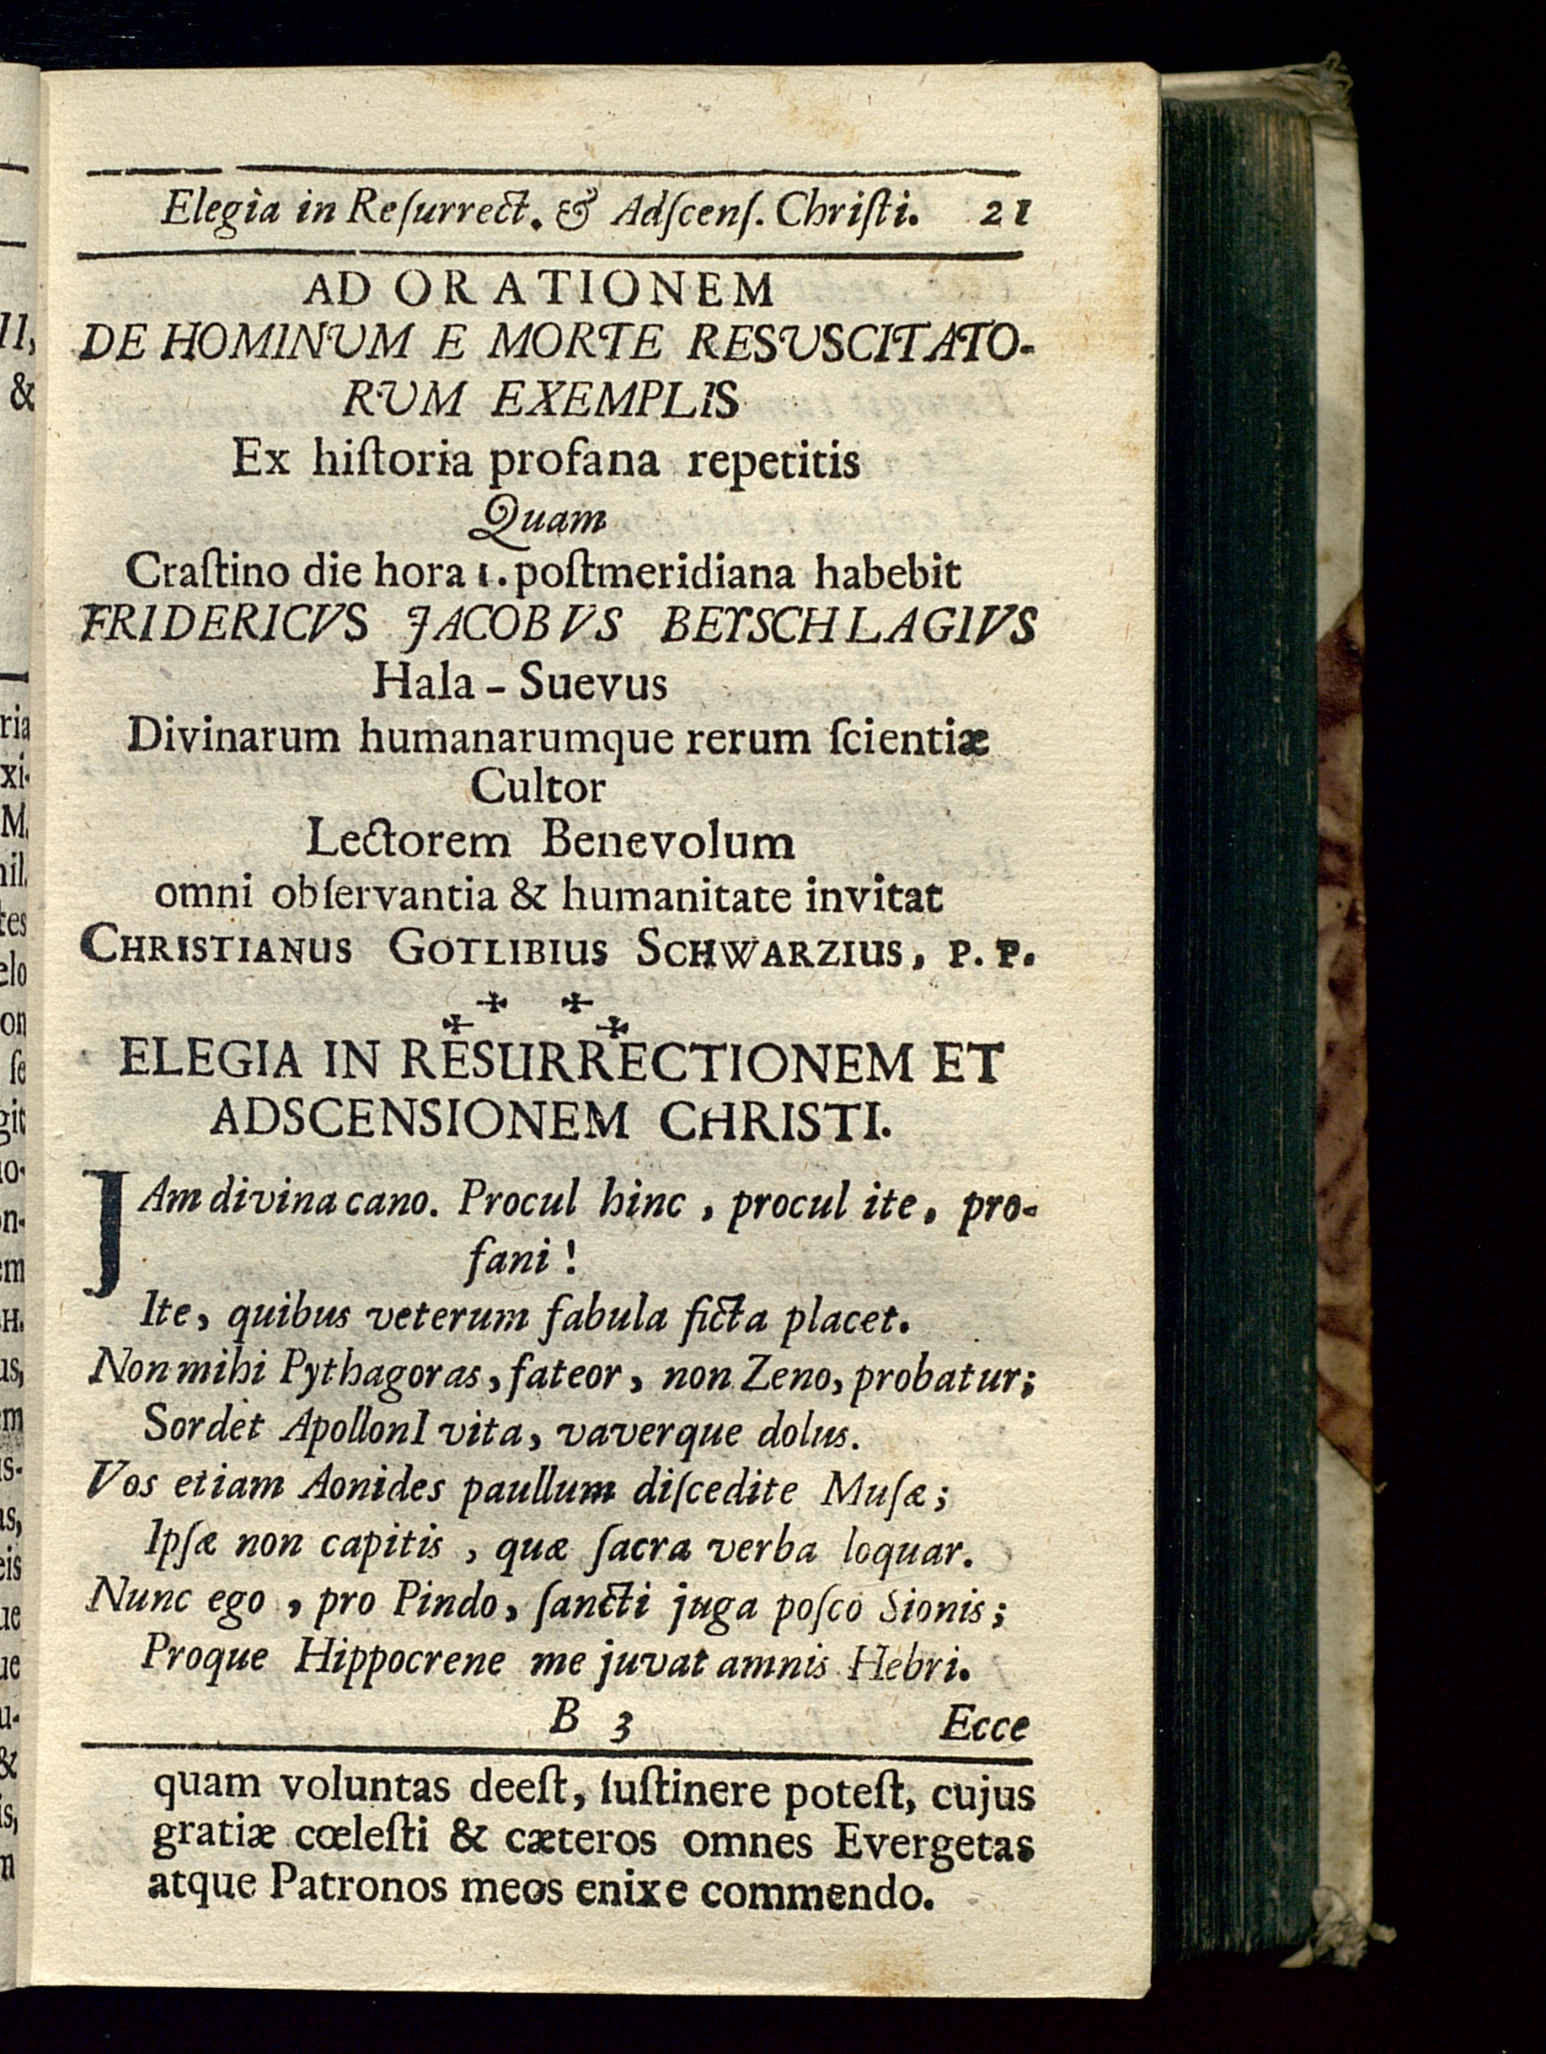 Elegia in Reſurrect. & Adſcenſ. Chriſti. 21
AD ORATIONEM
DE HOMINUM E MORTE RESUSCITATO-
RUM EXEMPLIS
Ex hiſtoria profana repetitis
Quam
Craſtino die hora 1. poſtmeridiana habebit
FRIDERICVS JACOBVS BEYSCHLAGIVS
Hala - Suevus
Divinarum humanarumque rerum ſcientiæ
Cultor
Lectorem Benevolum
omni obſervantia & humanitate invitat
CHRISTIANUS GOTLIBIUS SCHWARZIUS, P. P.
ELEGIA IN RESURRECTIONEM ET
ADSCENSIONEM CHRISTI.
JAm divina cano. Procul hinc, procul ite, pro-
fani!
Ite, quibus veterum fabula ficta placet.
Non mihi Pythagoras, fateor, non Zeno, probatur;
Sordet ApollonI vita, vaverque dolus.
Vos etiam Aonides paullum diſcedite Muſæ;
Ipſæ non capitis, quæ ſacra verba loquar.
Nunc ego, pro Pindo, ſancti juga poſco Sionis;
Proque Hippocrene me juvat amnis Hebri.
B 3 Ecce
quam voluntas deeſt, ſuſtinere poteſt, cujus
gratiæ cœleſti & cæteros omnes Evergetas
atque Patronos meos enixe commendo.